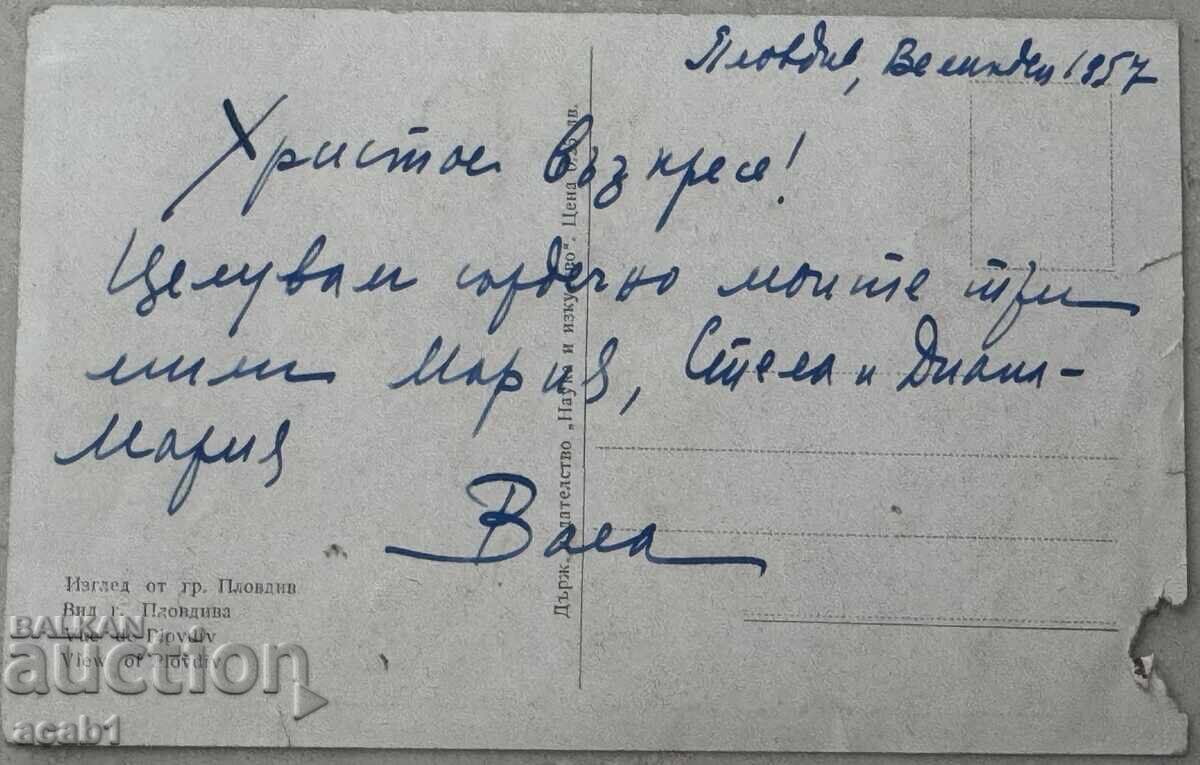 Пловдив, Великден 1957
Христос Възкресе!
Целувам сърдечно моите три
мили Мария, Стела и Диана-
Мария
Вала
Държ. издателство „Наука и изкуство“. Цена 0.32 лв.
Изглед от гр. Пловдив
Вид г. Пловдива
Vue de Plovdiv
View of Plovdiv
BALKAN
auction
acab1